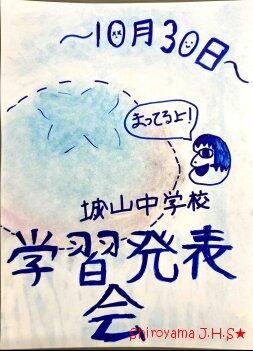 ～10月30日～
まってるよ!
城山中学校
学習発表
会
Shiroyama J.H.S★